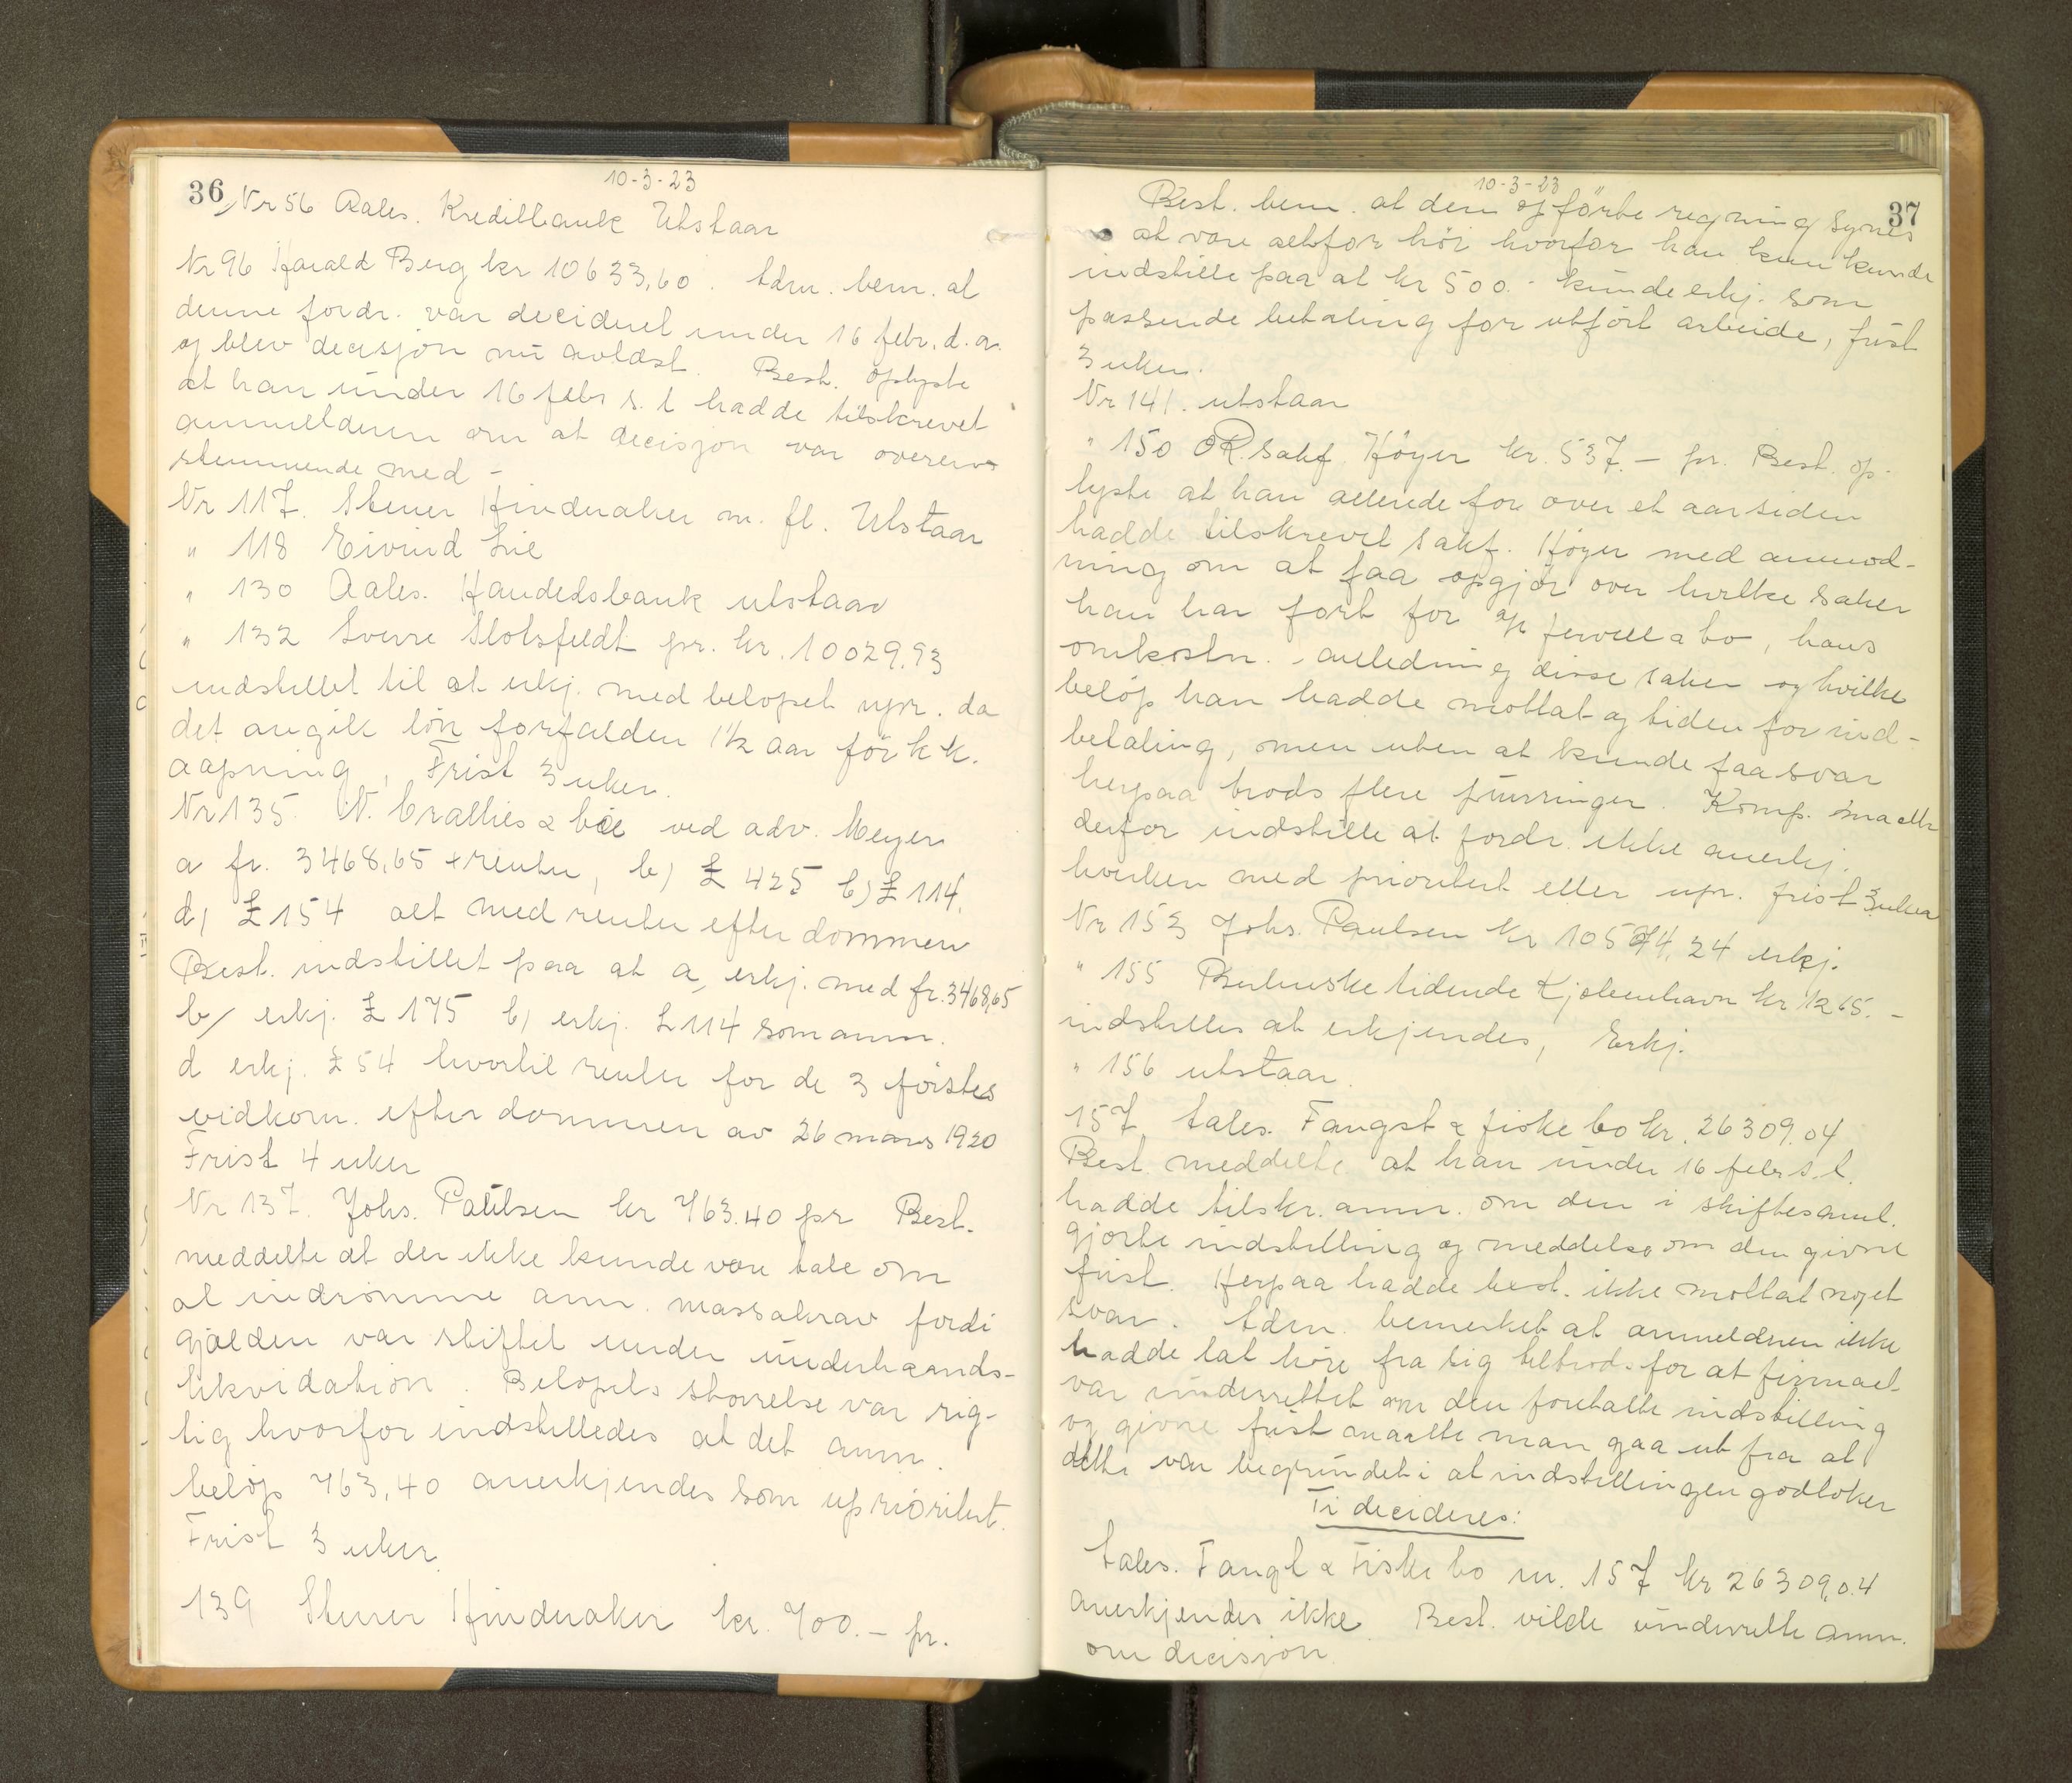 10-3-23
36 Nr 56 Aales. Kreditbank Utstaar
Nr 96 Harald Berg kr 10633,60. Adm. bem. at
denne fordr. var decideret under 16 febr. d.a.
og blev decisjon nu avlæst. Best. oplyste
at han under 16 febr s. l hadde tilskrevet
anmelderen om at decisjon var overens
stemmende med -
Nr 117. Stener Hinderaker m. fl. Utstaar
" 118 Eivind Lie
" 130 Aales. Handelsbank utstaar
" 132 Sverre Slotsfeldt pr. kr. 10029.93
indstillet til at erkj. med beløpet upr. da
det angik løn forfalden 1 1/2 aar før k k.
aapning, Frist 3 uker.
Nr 135. W. Crathies & Co ved adv. Meyer
a fr. 3468,65 + renter, b) £ 425 c) £ 114.
d) £ 154 alt med renter efter dommen
Best. indstillet paa at a, erkj. med fr. 3468,65
b/ erkj. £ 175 c) erkj. £ 114 som anm.
d erkj. £ 54 hvortil renter for de 3 førstes
vidkom. efter dommen av 26 mars 1920
Frist 4 uker
Nr 137. Johs. Paulsen kr 763.40 pr Best.
meddelte at der ikke kunde være tale om
at indrømme anm. massakrav fordi
gjælden var stiftet under underhaands-
likvidation. Beløpets størrelse var rig-
tig hvorfor indstilledes at det anm.
beløp 763,40 anerkjendes som uprioritert.
Frist 3 uker.
139 Stener Hinderaker kr. 700.- pr.
10-3-23
37
Best. bem. at den opførte regning synes
at være altfor høi hvorfor han kun kunde
indstille paa at kr 500.- kunde erkj. som
passende betaling for utført arbeide, frist
3 uker.
Nr 141. utstaar
" 150 OR. sakf. Høyer kr. 537.- pr. Best. op-
lyste at han allerede for over et aar siden
hadde tilskrevet sakf. Høyer med anmod-
ning om at faa opgjør over hvilke saker
han har ført for A/S Jervell & Co, hans
omkostn. i anledning disse saker og hvilke
beløp han hadde mottat og tiden for ind-
betaling, men uten at kunde faa svar
herpaa trods flere purringer. Komp. maatte
derfor indstille at fordr. ikke anerkj.
hverken med prioritert eller upr. frist 3 uker
Nr 153 Johs. Paulsen kr 10574,24 erkj.
" 155 Berlinske tidende Kjøbenhavn kr 1265.-
indstilles at erkjendes, Erkj.
" 156 utstaar.
157 Aales. Fangst & fiske Co kr. 26309.04
Best. meddelte at han under 16 febr s.l.
hadde tilskr. anm. om den i skiftesaml.
gjorte indstilling og meddelse om den givne
frist. Herpaa hadde best. ikke mottat noget
svar. Adm. bemerket at anmelderen ikke
hadde lat høre fra sig tiltrods for at firmaet
var underrettet om den foretatte indstilling
og givne frist maatte man gaa ut fra at
dette var begrundet i at indstillingen godtokes
Ti decideres:
Aales. Fangst & Fiske Co nr. 157 kr 26309,04
anerkjendes ikke. Best. vilde underrette anm.
om decisjon.